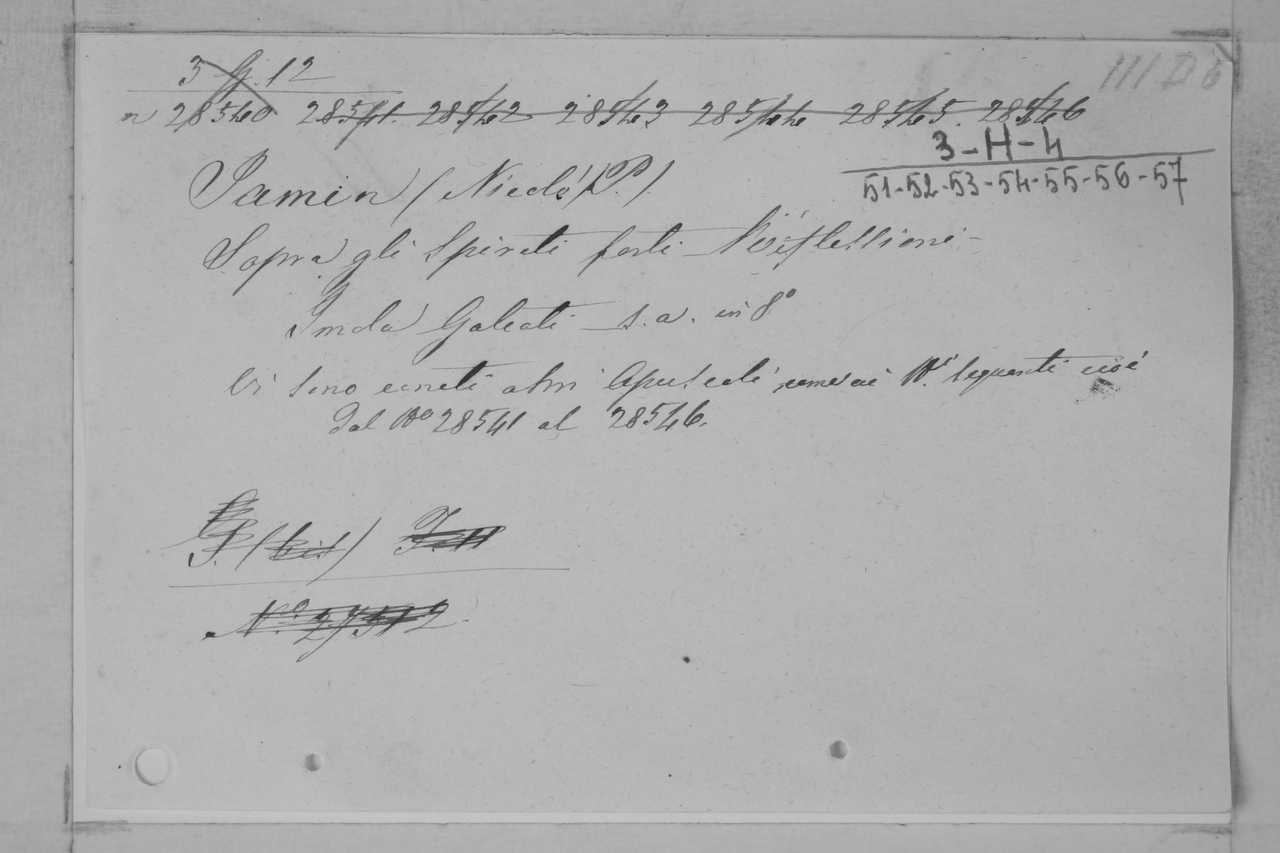 3 G. 12
III D 6
n 28540 28541 28542 28543 28544 28545. 28546
3-H-4
51-52-53-54-55-56-57
Jamin (Nicolò P.)
Sopra gli Spiriti forti Riflessioni-
Imola Galeati s.a. in 8º
Vi sono uniti altri Opuscoli come ai Ni. seguenti cioè
dal Nº 28541 al 28546.
P. (bis)
Nº.